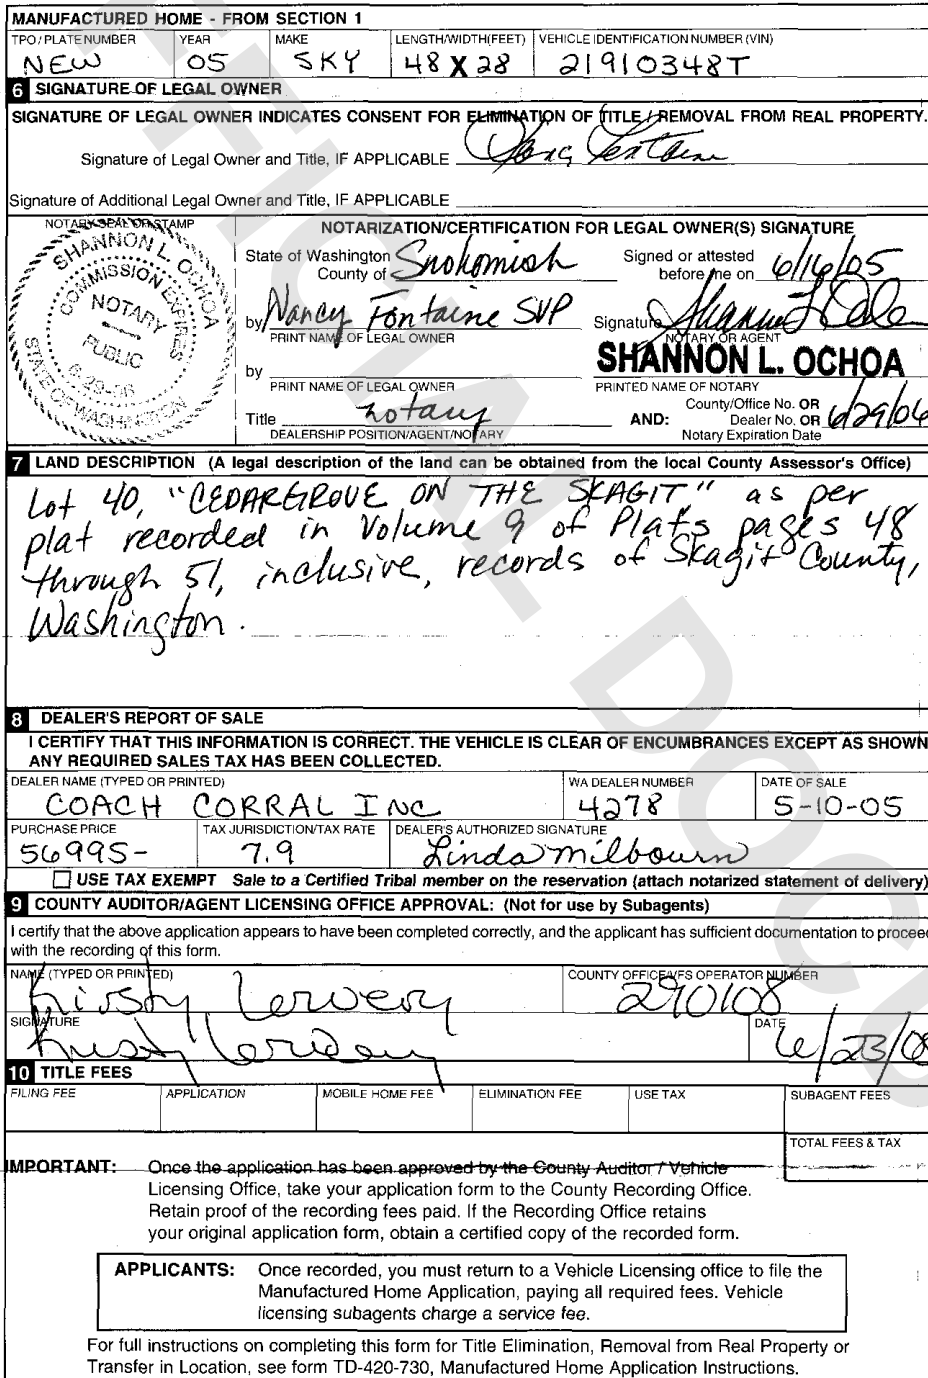 MANUFACTURED HOME - FROM SECTION 1
TPO / PLATE NUMBER YEAR MAKE LENGTH/WIDTH(FEET) VEHICLE IDENTIFICATION NUMBER (VIN)
NEW 05 SKY 48 X 28 21910348T
6 SIGNATURE OF LEGAL OWNER
SIGNATURE OF LEGAL OWNER INDICATES CONSENT FOR ELIMINATION OF TITLE / REMOVAL FROM REAL PROPERTY.
Signature of Legal Owner and Title, IF APPLICABLE
Signature of Additional Legal Owner and Title, IF APPLICABLE
NOTARY SEAL OR STAMP
SHANNON L. OCHOA
COMMISSION EXPIRES
NOTARY
PUBLIC
6-29-06
STATE OF WASHINGTON
NOTARIZATION/CERTIFICATION FOR LEGAL OWNER(S) SIGNATURE
State of Washington
County of Snohomish
Signed or attested
before me on 6/16/05
by Nancy Fontaine SVP
PRINT NAME OF LEGAL OWNER
Signature
NOTARY OR AGENT
SHANNON L. OCHOA
by
PRINT NAME OF LEGAL OWNER
PRINTED NAME OF NOTARY
Title notary
DEALERSHIP POSITION/AGENT/NOTARY
AND: County/Office No. OR
Dealer No. OR 6/29/06
Notary Expiration Date
7 LAND DESCRIPTION (A legal description of the land can be obtained from the local County Assessor's Office)
Lot 40, "CEDARGROVE ON THE SKAGIT" as per
plat recorded in Volume 9 of Plats pages 48
through 51, inclusive, records of Skagit County,
Washington.
8 DEALER'S REPORT OF SALE
I CERTIFY THAT THIS INFORMATION IS CORRECT. THE VEHICLE IS CLEAR OF ENCUMBRANCES EXCEPT AS SHOWN
ANY REQUIRED SALES TAX HAS BEEN COLLECTED.
DEALER NAME (TYPED OR PRINTED) WA DEALER NUMBER DATE OF SALE
COACH CORRAL INC 4278 5-10-05
PURCHASE PRICE TAX JURISDICTION/TAX RATE DEALER'S AUTHORIZED SIGNATURE
56995- 7.9 Linda Milbourn
USE TAX EXEMPT Sale to a Certified Tribal member on the reservation (attach notarized statement of delivery)
9 COUNTY AUDITOR/AGENT LICENSING OFFICE APPROVAL: (Not for use by Subagents)
I certify that the above application appears to have been completed correctly, and the applicant has sufficient documentation to proceed
with the recording of this form.
NAME (TYPED OR PRINTED) COUNTY OFFICE/VFS OPERATOR NUMBER
290108
SIGNATURE DATE
6/23/0
10 TITLE FEES
FILING FEE APPLICATION MOBILE HOME FEE ELIMINATION FEE USE TAX SUBAGENT FEES
TOTAL FEES & TAX
IMPORTANT: Once the application has been approved by the County Auditor / Vehicle
Licensing Office, take your application form to the County Recording Office.
Retain proof of the recording fees paid. If the Recording Office retains
your original application form, obtain a certified copy of the recorded form.
APPLICANTS: Once recorded, you must return to a Vehicle Licensing office to file the
Manufactured Home Application, paying all required fees. Vehicle
licensing subagents charge a service fee.
For full instructions on completing this form for Title Elimination, Removal from Real Property or
Transfer in Location, see form TD-420-730, Manufactured Home Application Instructions.